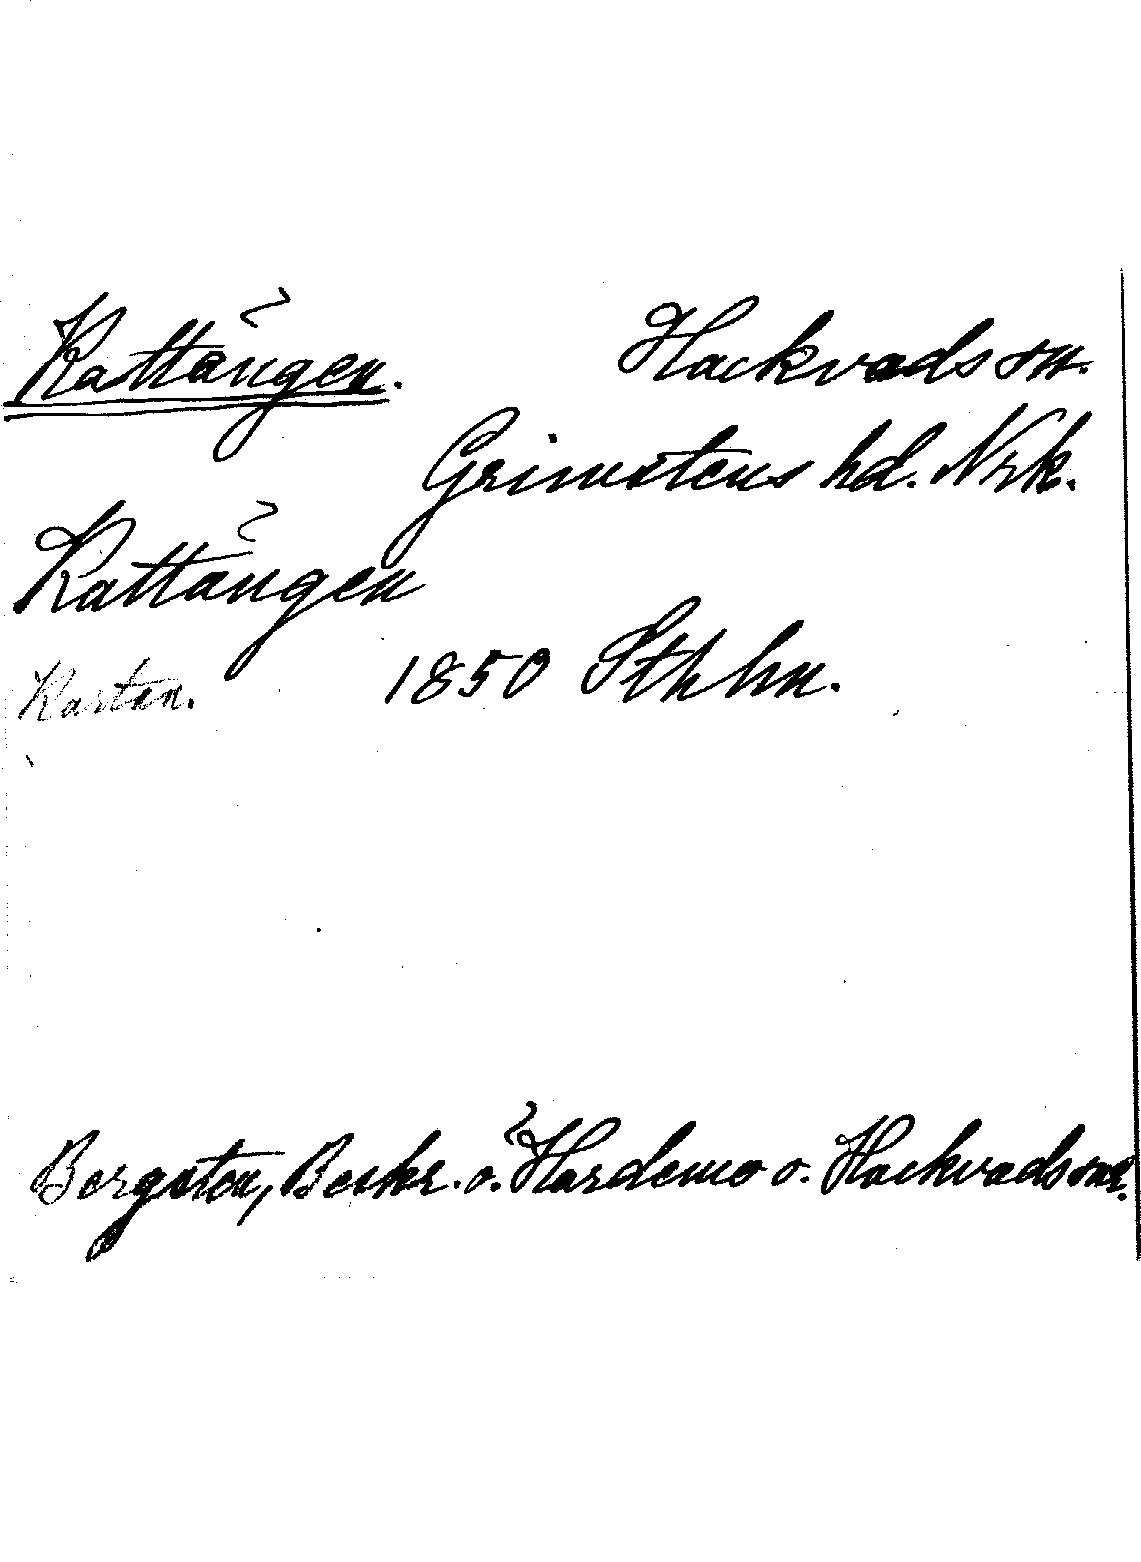 Kattängen. Hackvads sn.
Grimstens hd. Nrk.
Kattängen
Kartan. 1850 Sthlm.
Bergsten, Beskr. ö. Hardemo o. Hackvads snr.